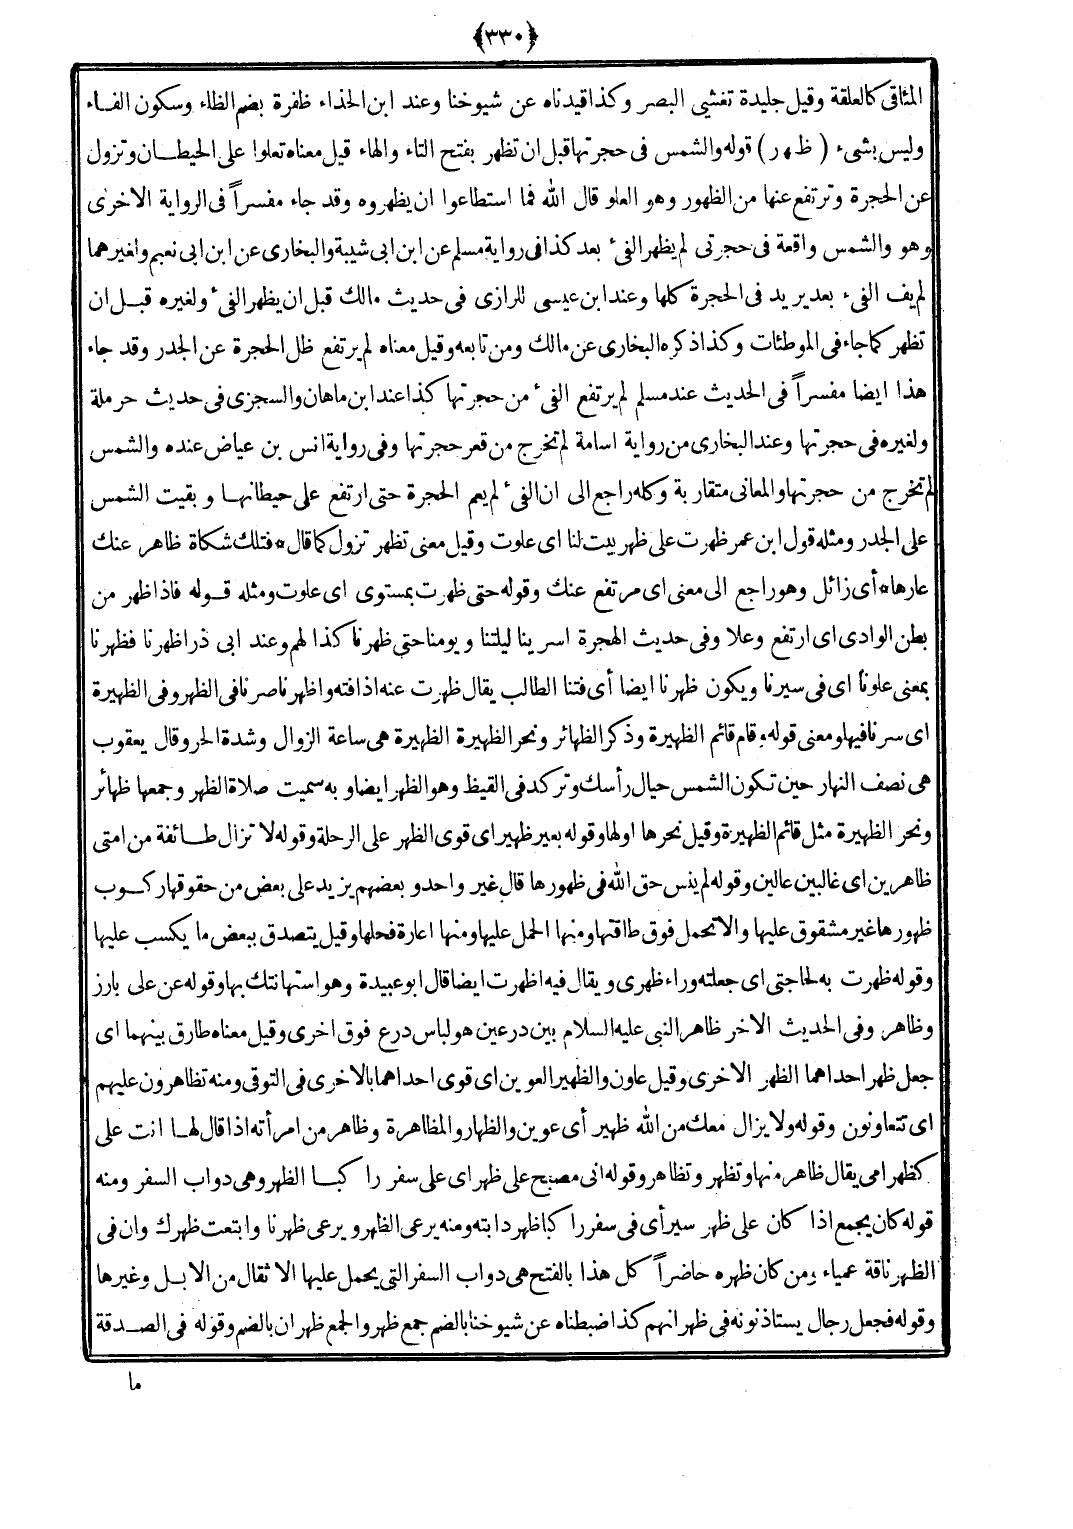 ﴿٣٣٠﴾
المئاقى كالعلقة وقيل جليدة تغشي البصر وكذا قيدناه عن شيوخنا وعند ابن الحذاء ظفرة بضم الظاء وسكون الفاء
وليس بشىء ( ظ هر ) قوله والشمس فى حجرتها قبل ان تظهر بفتح التاء والهاء قيل معناه تعلوا على الحيطان وتزول
عن الحجرة وترتفع عنها من الظهور وهو العلو قال الله فما استطاعوا ان يظهروه وقد جاء مفسراً فى الرواية الاخرى
وهو والشمس واقعة فى حجرتى لم يظهر الفىء بعد كذا فى رواية مسلم عن ابن ابى شيبة والبخارى عن ابن ابى نعيم ولغيرهما
لم يف الفىء بعد يريد فى الحجرة كلها وعند ابن عيسى للرازى فى حديث مالك قبل ان يظهر الفىء ولغيره قبل ان
تظهر كما جاء فى الموطئات وكذا ذكره البخارى عن مالك ومن تابعه وقيل معناه لم يرتفع ظل الحجرة عن الجدر وقد جاء
هذا ايضا مفسراً فى الحديث عند مسلم لم يرتفع الفىء من حجرتها كذا عند ابن ماهان والسجزى فى حديث حرملة
ولغيره فى حجرتها وعند البخارى من رواية اسامة لم تخرج من قعر حجرتها وفى رواية انس بن عياض عنده والشمس
لم تخرج من حجرتها والمعانى متقاربة وكله راجع الى ان الفىء لم يعم الحجرة حتى ارتفع على حيطانها وبقيت الشمس
على الجدر ومثله قول ابن عمر ظهرت على ظهر بيت لنا اى علوت وقيل معنى تظهر تزول كما قال * فتلك شكاة ظاهر عنك
عارها * أى زائل وهو راجع الى معنى اى مرتفع عنك وقوله حتى ظهرت بمستوى اى علوت ومثله قوله فاذا ظهر من
بطن الوادى اى ارتفع وعلا وفى حديث الهجرة اسرينا ليلتنا ويومنا حتى ظهرنا كذا لهم وعند ابى ذر اظهرنا فظهرنا
بمعنى علونا اى فى سيرنا ويكون ظهرنا ايضا أى فتنا الطالب يقال ظهرت عنه اذا فته واظهرنا صرنا فى الظهر وفى الظهيرة
اى سرنا فيها ومعنى قوله وقام قائم الظهيرة وذكر الظهائر ونحر الظهيرة الظهيرة هى ساعة الزوال وشدة الحر وقال يعقوب
هى نصف النهار حين تكون الشمس حيال رأسك وتركد فى القيظ وهو الظهر ايضا وبه سميت صلاة الظهر وجمعها ظهائر
ونحر الظهيرة مثل قائم الظهيرة وقيل نحرها اولها وقوله بعير ظهير اى قوى الظهر على الرحلة وقوله لا تزال طائفة من امتى
ظاهرين اى غالبين عالين وقوله لم ينس حق الله فى ظهورها قال غير واحد وبعضهم يزيد على بعض من حقوقها ركوب
ظهورها غير مشقوق عليها والا تحمل فوق طاقتها ومنها الحمل عليها ومنها اعارة فحلها وقيل يتصدق ببعض ما يكسب عليها
وقوله ظهرت به لحاجتى اى جعلته وراء ظهرى ويقال فيه اظهرت ايضا قال ابو عبيدة وهو استهانتك بها وقوله عن على بارز
وظاهر وفى الحديث الاخر ظاهر النبى عليه السلام بين درعين هو لباس درع فوق اخرى وقيل معناه طارق بينهما اى
جعل ظهر احداهما الظهر الاخرى وقيل عاون والظهير العوين اى قوى احداهما بالاخرى فى التوقى ومنه تظاهرون عليهم
اى تتعاونون وقوله ولا يزال معك من الله ظهير أى عوين والظهار والمظاهرة وظاهر من امرأته اذا قال لها انت على
كظهر امى يقال ظاهر منها وتظهر وتظاهر وقوله انى مصبح على ظهر اى على سفر را كبا الظهر وهى دواب السفر ومنه
قوله كان يجمع اذا كان على ظهر سير أى فى سفر راكبا ظهر دابته ومنه يرعى الظهر ويرعى ظهرنا وابتعت ظهرك وان فى
الظهر ناقة عمياء ومن كان ظهره حاضراً كل هذا بالفتح هى دواب السفر التى يحمل عليها الاثقال من الابل وغيرها
وقوله فجعل رجال يستاذنونه فى ظهرانهم كذا ضبطناه عن شيوخنا بالضم جمع ظهر والجمع ظهران بالضم وقوله فى الصدقة
ما